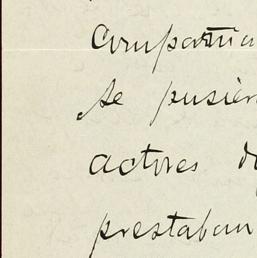 compañia
se pusier
actores d
prestaban